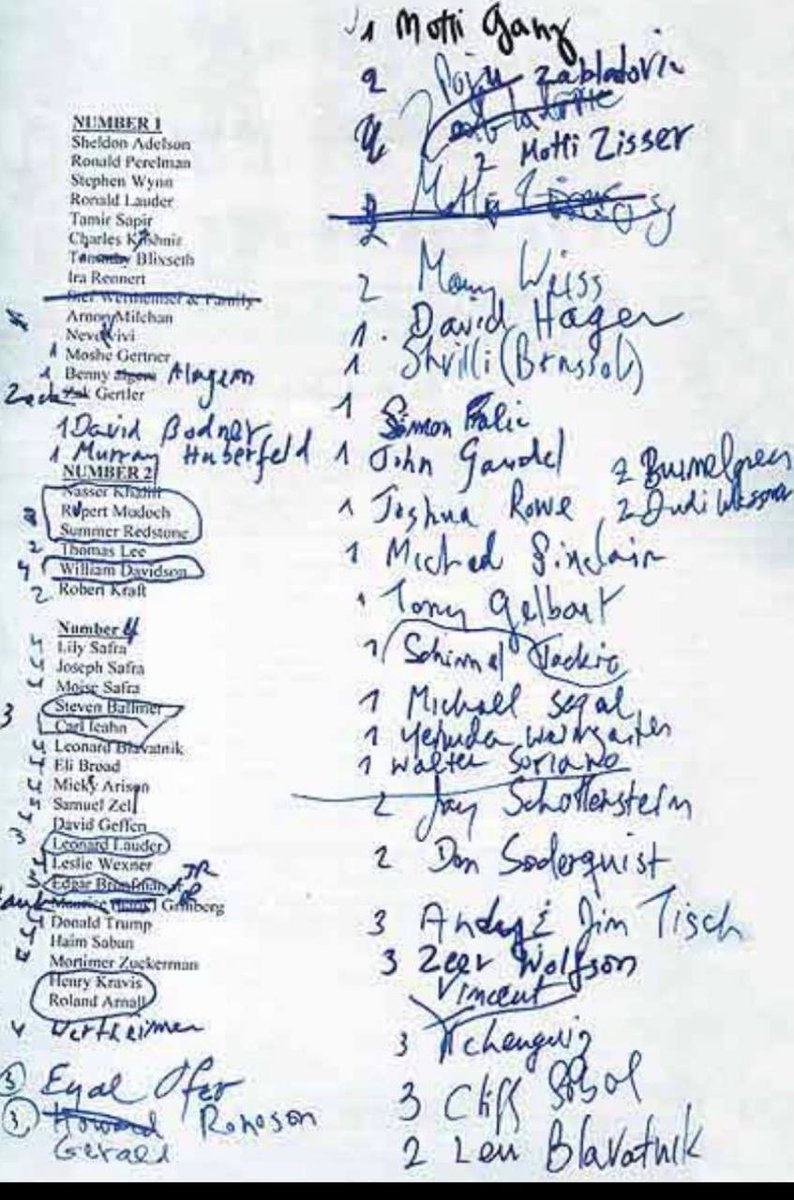 NUMBER 1
Sheldon Adelson
Ronald Perelman
Stephen Wynn
Ronald Lauder
Tamir Sapir
Charles
Blixseth
Ira Rennert
Stef Wertheimer & Family
Arnon Milchan
1 Moshe Gertner
1 Benny Alagem
Zack Gertler
1 David Bodner
1 Murray Huberfeld
NUMBER 2
Nasser Khalili
Rupert Mudoch
Summer Redstone
2 Thomas Lee
4 William Davidson
2 Robert Kraft
Number 4
4 Lily Safra
4 Joseph Safra
4 Moise Safra
3 Steven Ballmer
Carl Icahn
4 Leonard Blavatnik
4 Eli Broad
4 Micky Arison
4 Samuel Zell
David Geffen
Leonard Lauder
Leslie Wexner
Edgar Bronfman JR
Grinberg
Donald Trump
Haim Saban
Mortimer Zuckerman
Henry Kravis
Roland Arnall
4 Wertheimer
3 Eyal Ofer
3 Howard Ronson
Gerald
1 Motti Ganz
2 Poju Zabladovic
2 Motti Zisser
2 Weiss
1. David Hager
1 Shvilli (Brussol)
1 Simon Falic
1 John Gandel
1 Joshua Rowe
1 Michael Sinclair
1 Tony Gelbart
1 Schimmel Jackie
1 Michael Segal
1 Yehuda
1 Walter Soriano
2 Jay Schottenstein
2 Don Soderquist
3 Andy & Jim Tisch
3 Zeev Wolfson
Vincent
3 Tchenguiz
3 Cliff Sobol
2 Len Blavatnik
2
2 Judi